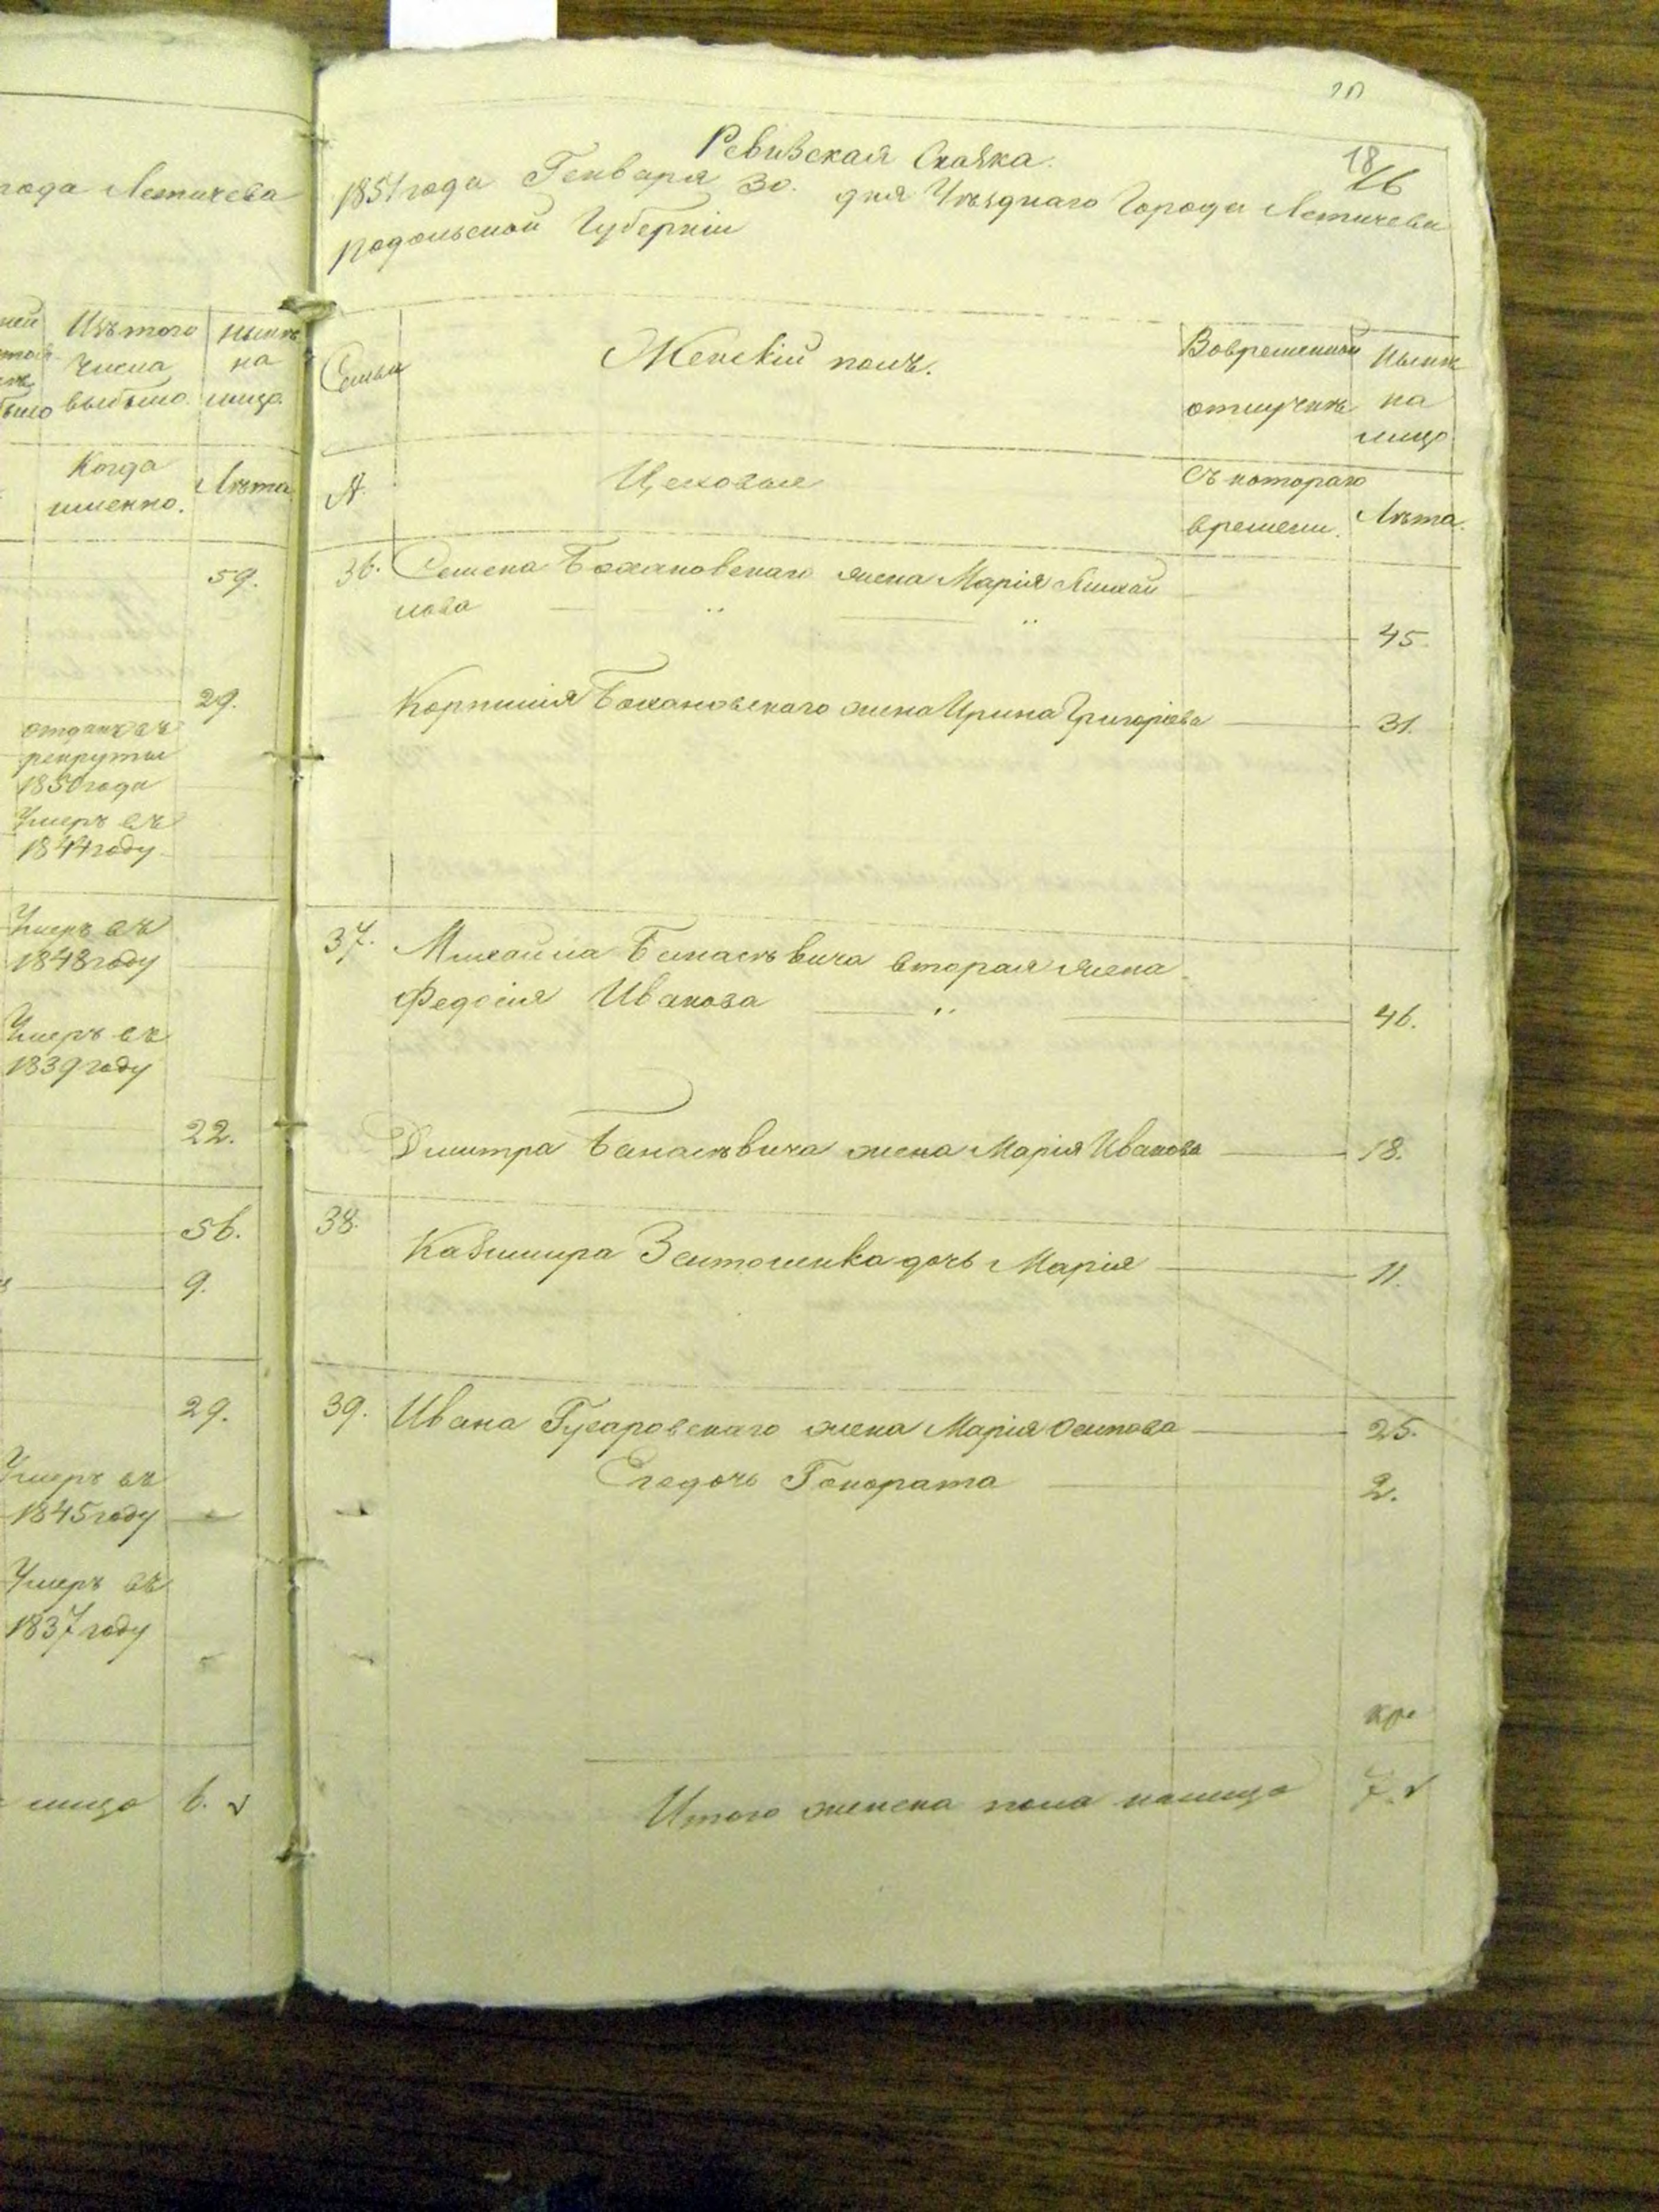 20
18
26
Ревизская Сказка.
1851 года Генваря 30. дня Уѣзднаго Города Летичева
Подольской Губерніи
Семьи
Женскій полъ.
Вовременной
отлучкѣ
Нынѣ
на
лицо
№
Цеховые
Съ котораго
времени.
Лѣта.
36. Семена Бохановскаго жена Марія Михай
лова
45.
Корнилія Бохановскаго жена Ирина Григоріева 31.
37. Михаила Банасѣвича вторая жена
Федосія Иванова 46.
Дмитра Банасѣвича жена Марія Иванова 18.
38.
Казимира дочь Марія 11.
39. Ивана Гусаровскаго жена Марія Осипова 25.
Его дочь Гонората 2.
Итого женска пола налицо 7.
года Летичева
Изъ того
числа
выбыло.
Нынѣ
на
лицо.
Когда
именно.
Лѣта
59.
29.
отданъ въ
рекруты
1850 года
Умеръ въ
1844 году
Умеръ въ
1848 году
Умеръ въ
1839 году
22.
56.
9.
29.
Умеръ въ
1845 году
Умеръ въ
1837 году
лицо 6.